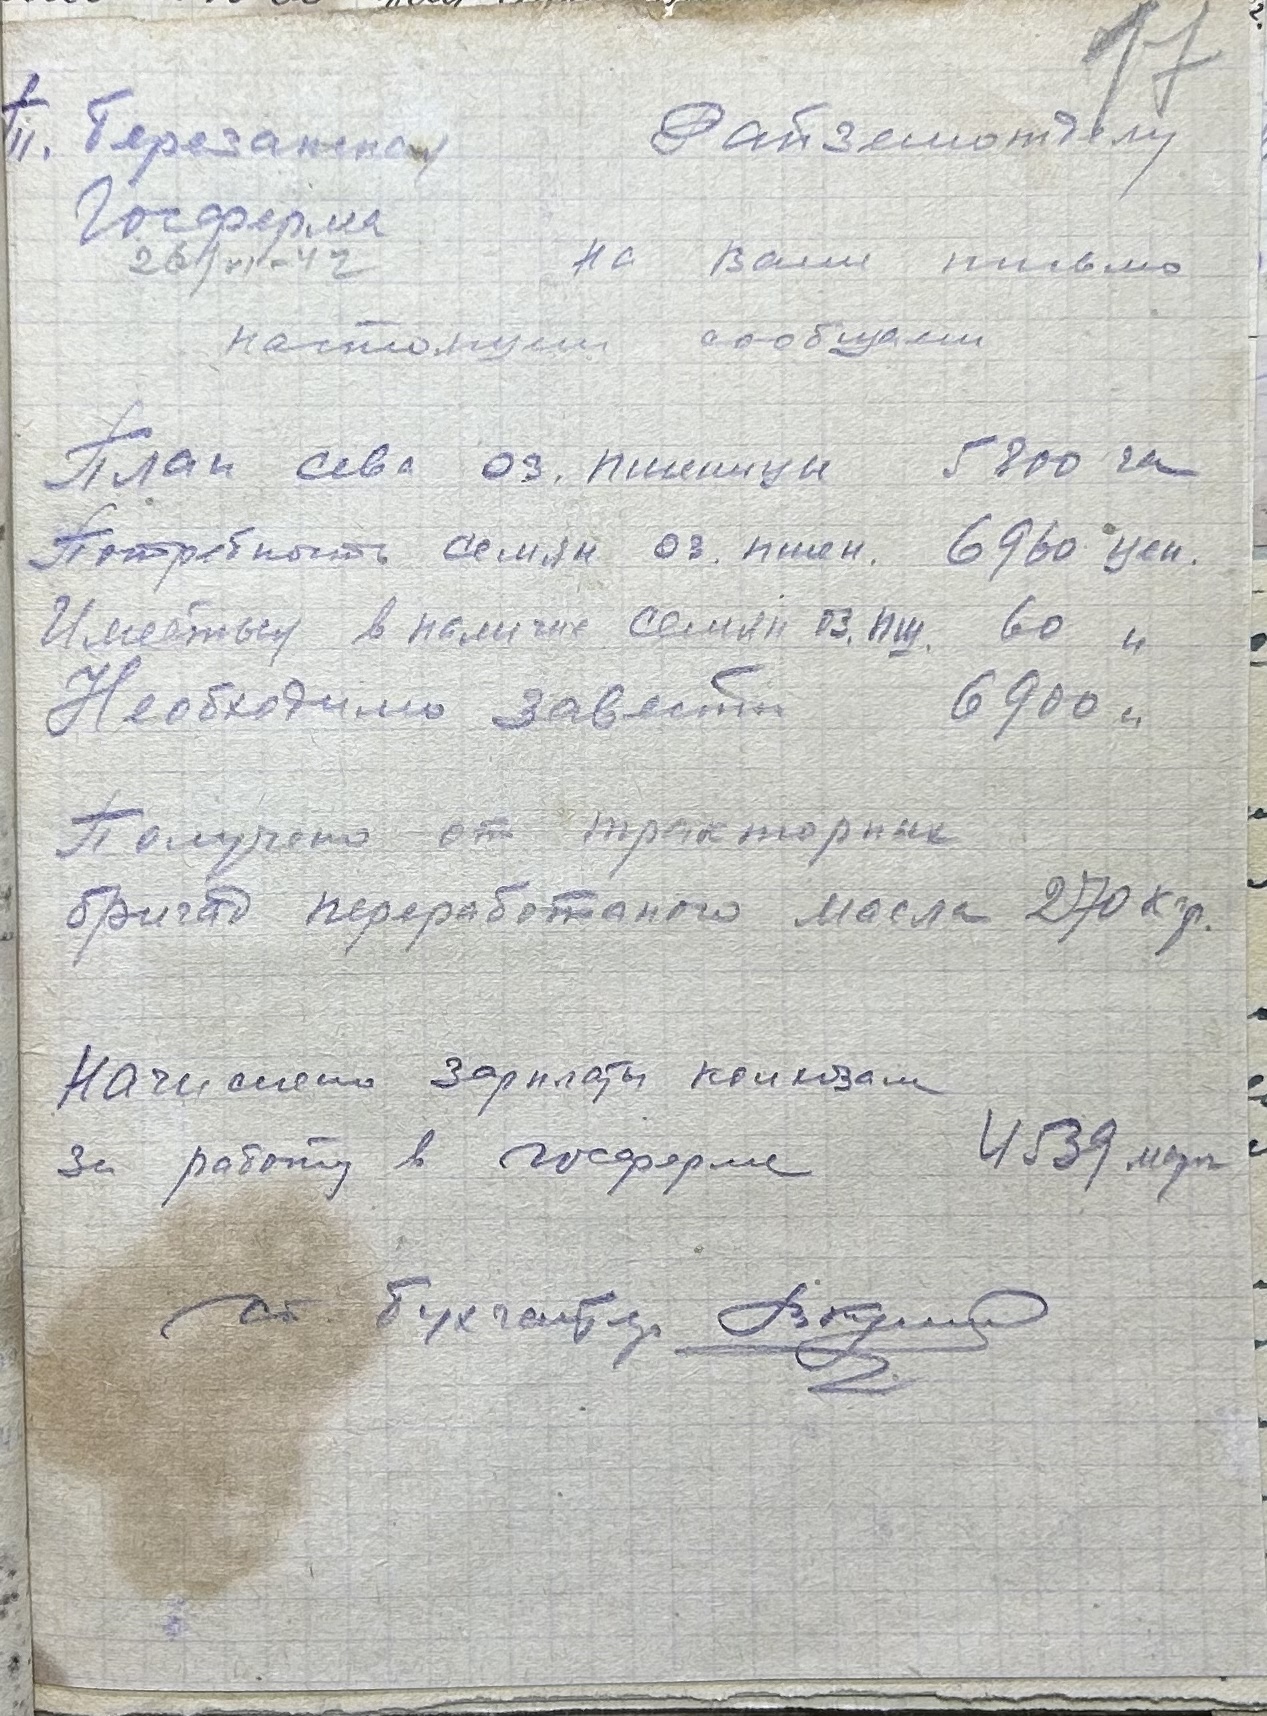 17
П. Березанская Райземотделу
Госферма
26/XI-42 на ваше письмо
настоящим сообщаем
План сева оз. пшеницы 5800 га
Потребность семян оз. пшен. 6960 цен.
Имеетьсяу в наличие семян оз. пш. 60 "
Необходимо завести 6900 "
Получено от тракторных
бригад переработаного масла 270 кгр.
Начислено зарплаты колхозам
за работу в госферме 4539 марк
Ст. бухгалтер